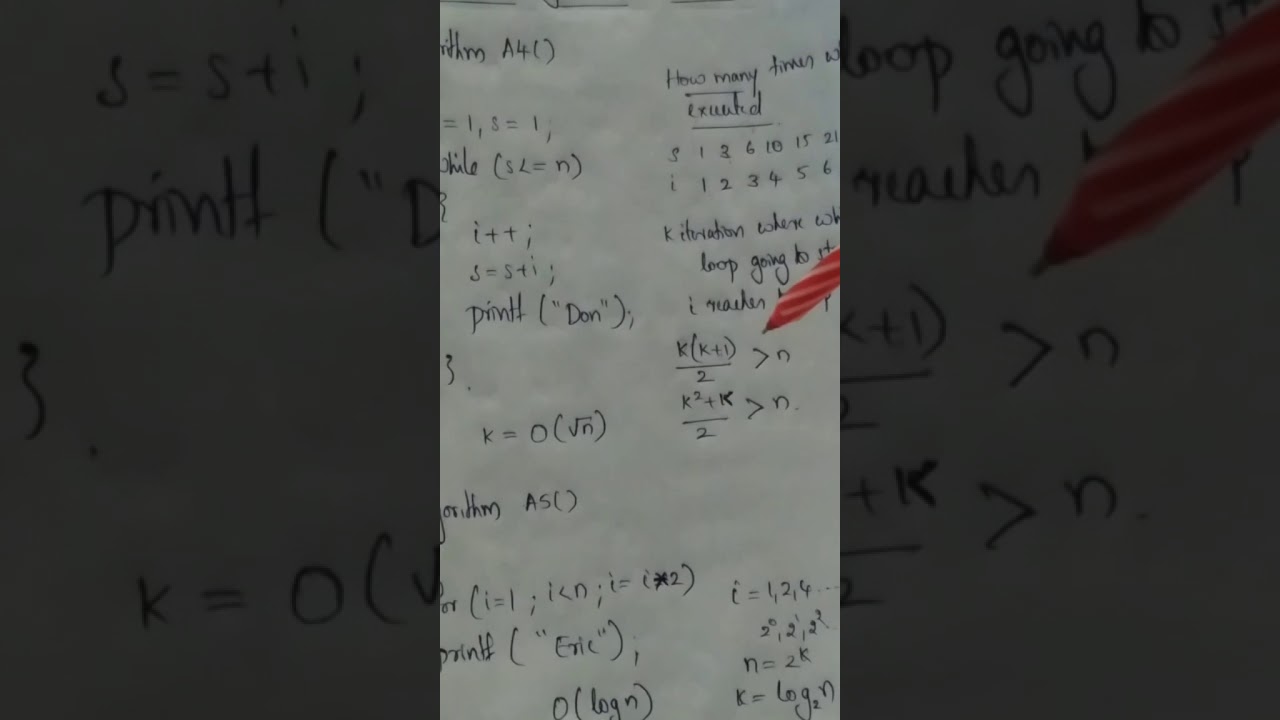 rithm A4()
= 1, s = 1;
while (s<= n)
{
i++;
s=s+i;
printf ("Don");
}.
k = O(√n)
How many times w
exuuted
s 1 3 6 10 15 21
i 1 2 3 4 5 6
k iteration where wh
loop going to st
i reaches
k(k+1)/2 > n
k²+k/2 > n.
gorithm A5()
for (i=1 ; i<n ; i= i*2)
printf ("Eric");
O(logn)
i = 1,2,4 ...
2⁰, 2¹, 2²
n = 2ᵏ
k = log₂n